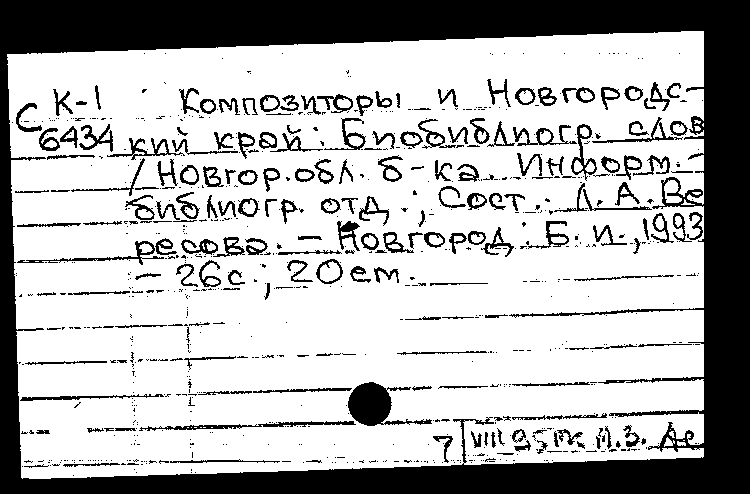 К-1 Композиторы и Новгородс-
С 6434 кий край: Биобиблиогр. слов
/ Новгор. обл. б-ка. Информ.-
библиогр. отд.; Сост.: Л. А. Ве
ресова. - Новгород: Б. и., 1993
- 26с.; 20см.
7 VIII 95